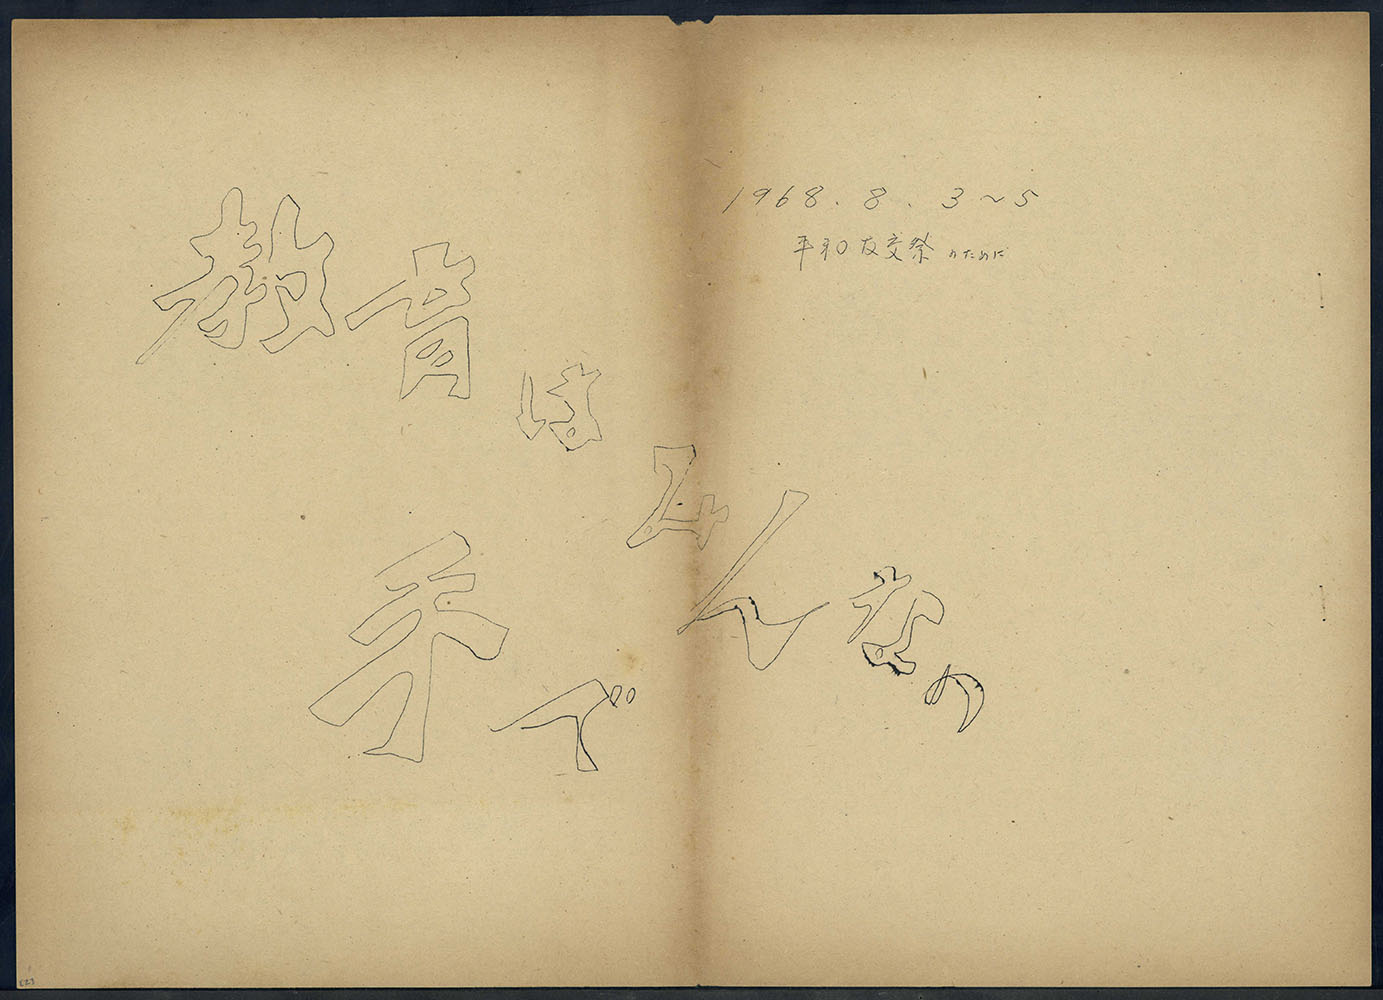 1968. 8. 3~5
平和友交祭のために
教育は
みんなの
手で